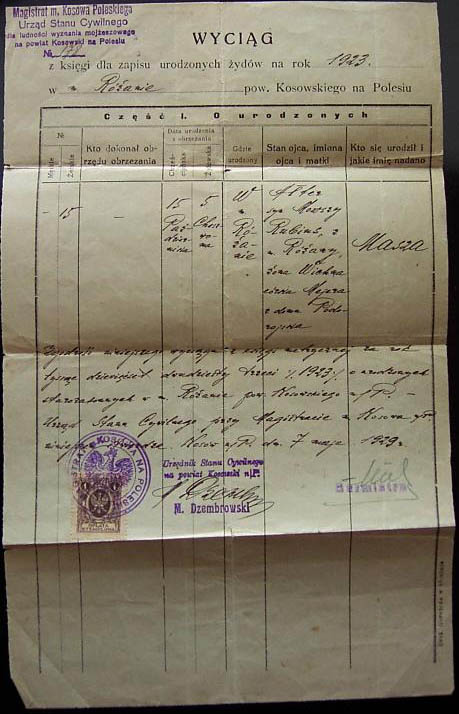 Magistrat m. Kosowa Poleskiego
Urząd Stanu Cywilnego
dla ludności wyznania mojżeszowego
na powiat Kosowski na Polesiu
№
WYCIĄG
z księgi dla zapisu urodzonych żydów na rok 1923.
w m. Różanie pow. Kosowskiego na Polesiu
Część I. O urodzonych
№
Męskie
Żeńskie
Kto dokonał obrzędu obrzezania
Data urodzenia i obrzezania
Chrześcijańska
Żydowska
Gdzie urodzony
Stan ojca, imiona ojca i matki
Kto się urodził i jakie imię nadano
- 15 - 15 Października 5 W m. Różanie
Alter
syn Mowszy
Rubins, z
m. Różany,
żona
córka
z domu
Masza
Zgodność niniejszego wyciągu z księgi metrycznej za rok
tysiąc dziewięćset dwudziesty trzeci /1923/ o urodzonych
starozakonnych w m. Różanie pow. Kosowskiego n/P.-
Urząd Stanu Cywilnego przy Magistracie m. Kosowa n/P.
dn. 7 maja 1929 r.
Urzędnik Stanu Cywilnego
na powiat Kosowski n/P.
M. Dzembrowski
Burmistrz
KOSOWA NA POLESIU
OPŁATA
STEMPLOWA